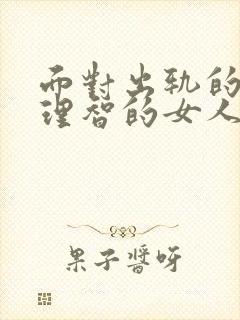 而對出軌的
理智的女人
果子醬呀